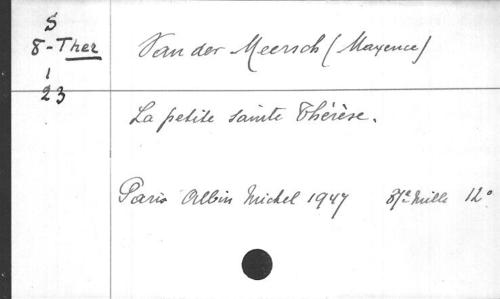 S
8-Ther
1
23
Van der Meersch (Maxence)
La petite sainte Thérèse.
Paris Albin Michel 1947 87e Mille 12°